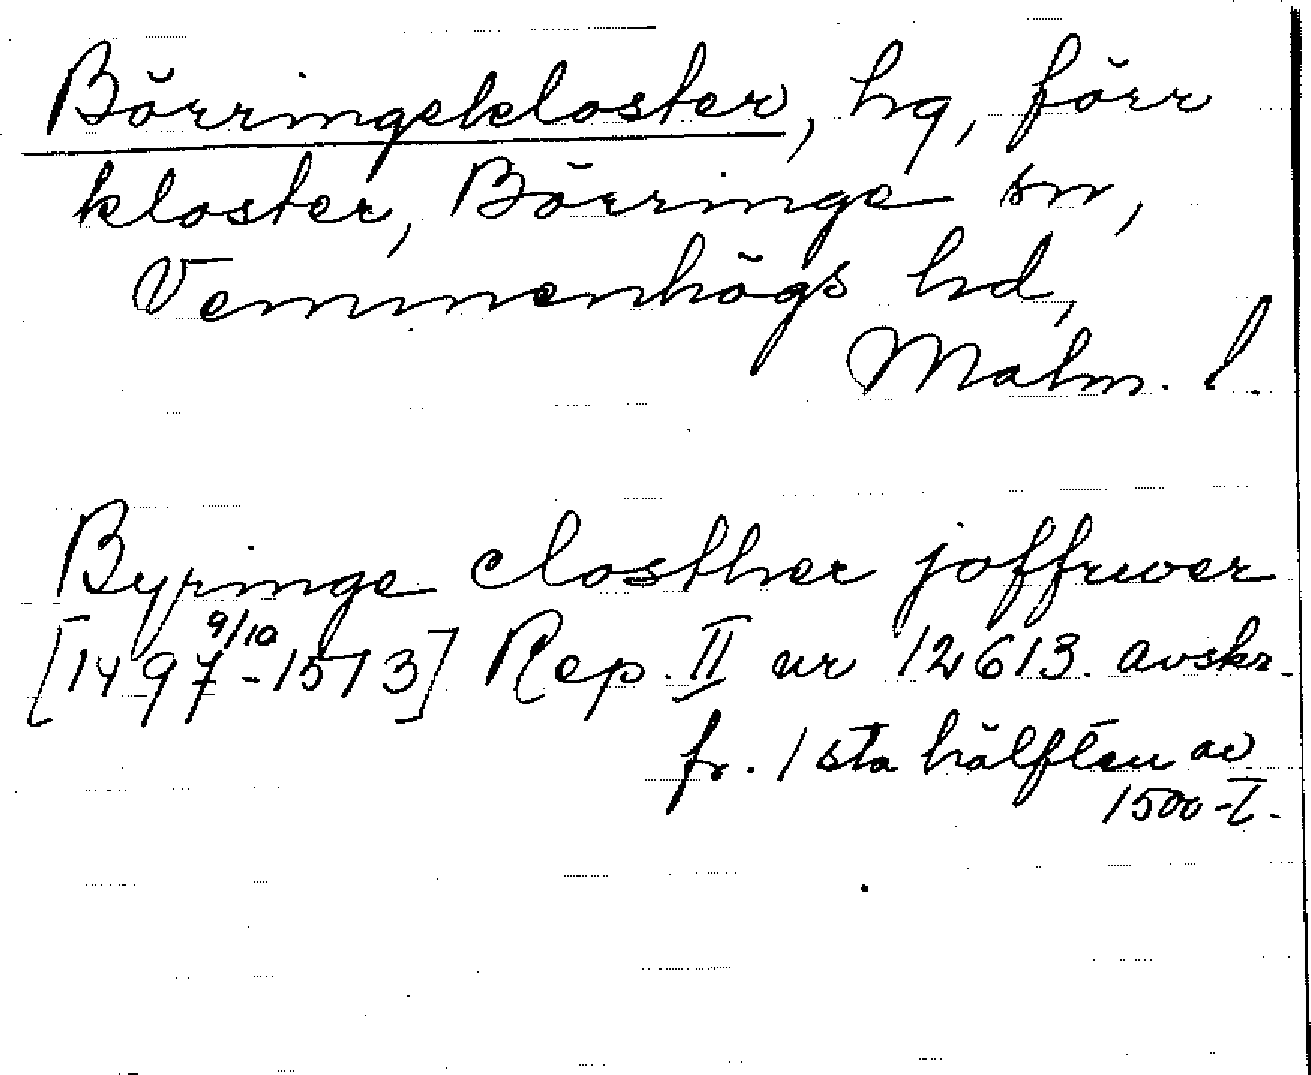 Börringekloster, hg, förr
kloster, Börringe sn,
Vemmenhögs hd,
Malm. l.
Byringe closther joffrwer
[1497 9/10 -1513] Rep. II nr 12613. avskr.
fr. 1sta hälften av
1500-t.